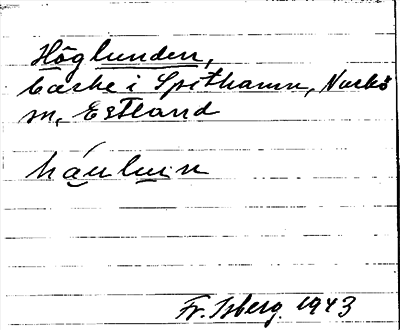 Höglunden,
backe i Spithamn, Nuckö
sn, Estland
háulun
Fr. Isberg. 1943